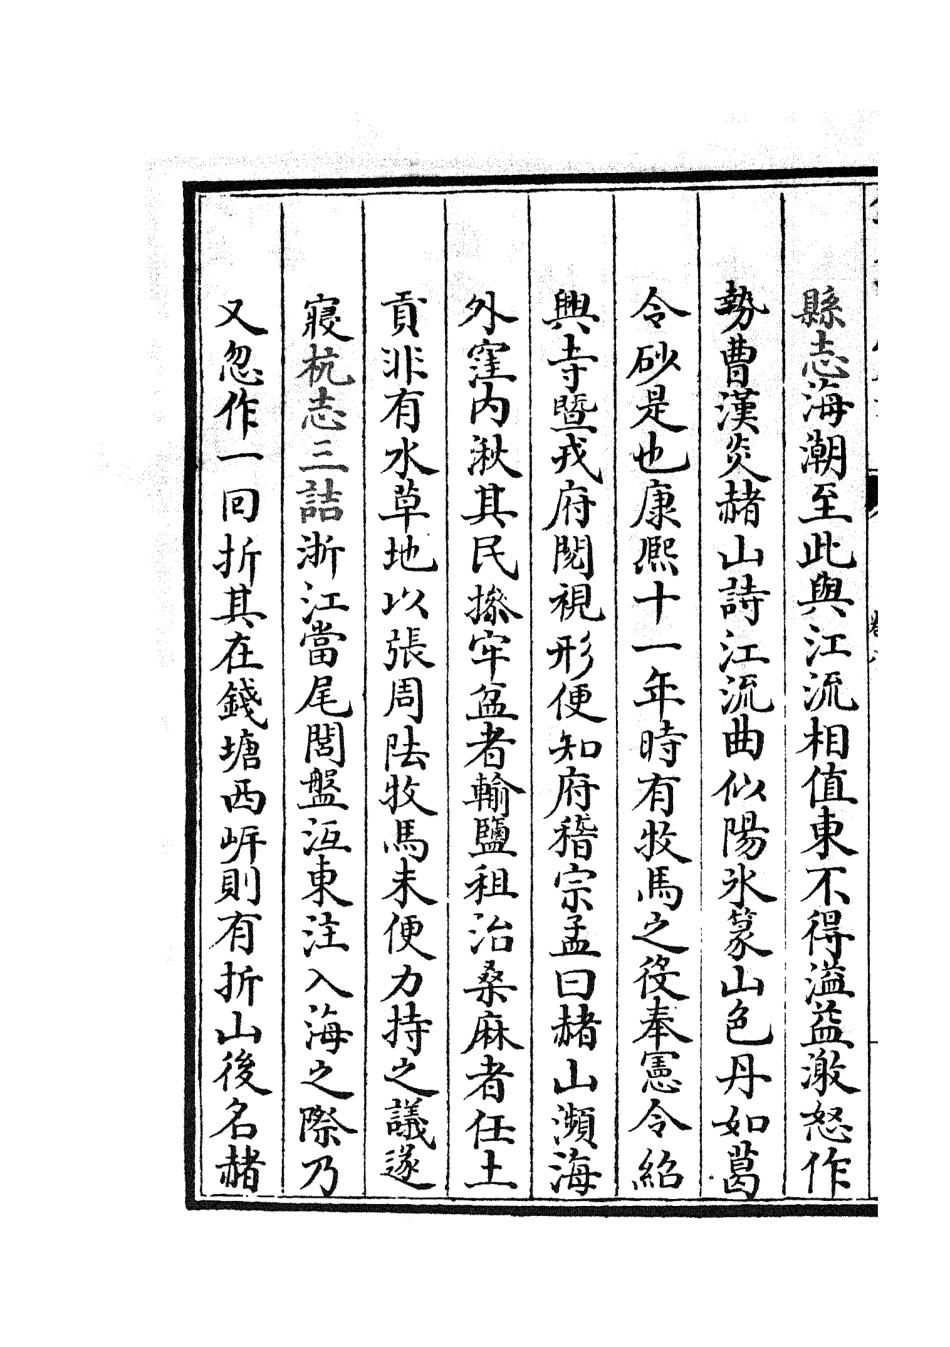 縣志海潮至此與江流相值東不得溢益激怒作
勢曹漢炎赭山詩江流曲似陽氷篆山色丹如葛
令砂是也康熙十一年時有牧馬之役奉憲令紹
興寺暨戎府閱視形便知府稽宗孟曰赭山瀕海
外窪内湫其民摻牢盆者輸鹽租治桑麻者任土
貢非有水草地以張周阹牧馬未便力持之議遂
寢杭志三詰浙江當尾閭盤沍東注入海之際乃
又忽作一回折其在錢塘西岍則有折山後名赭